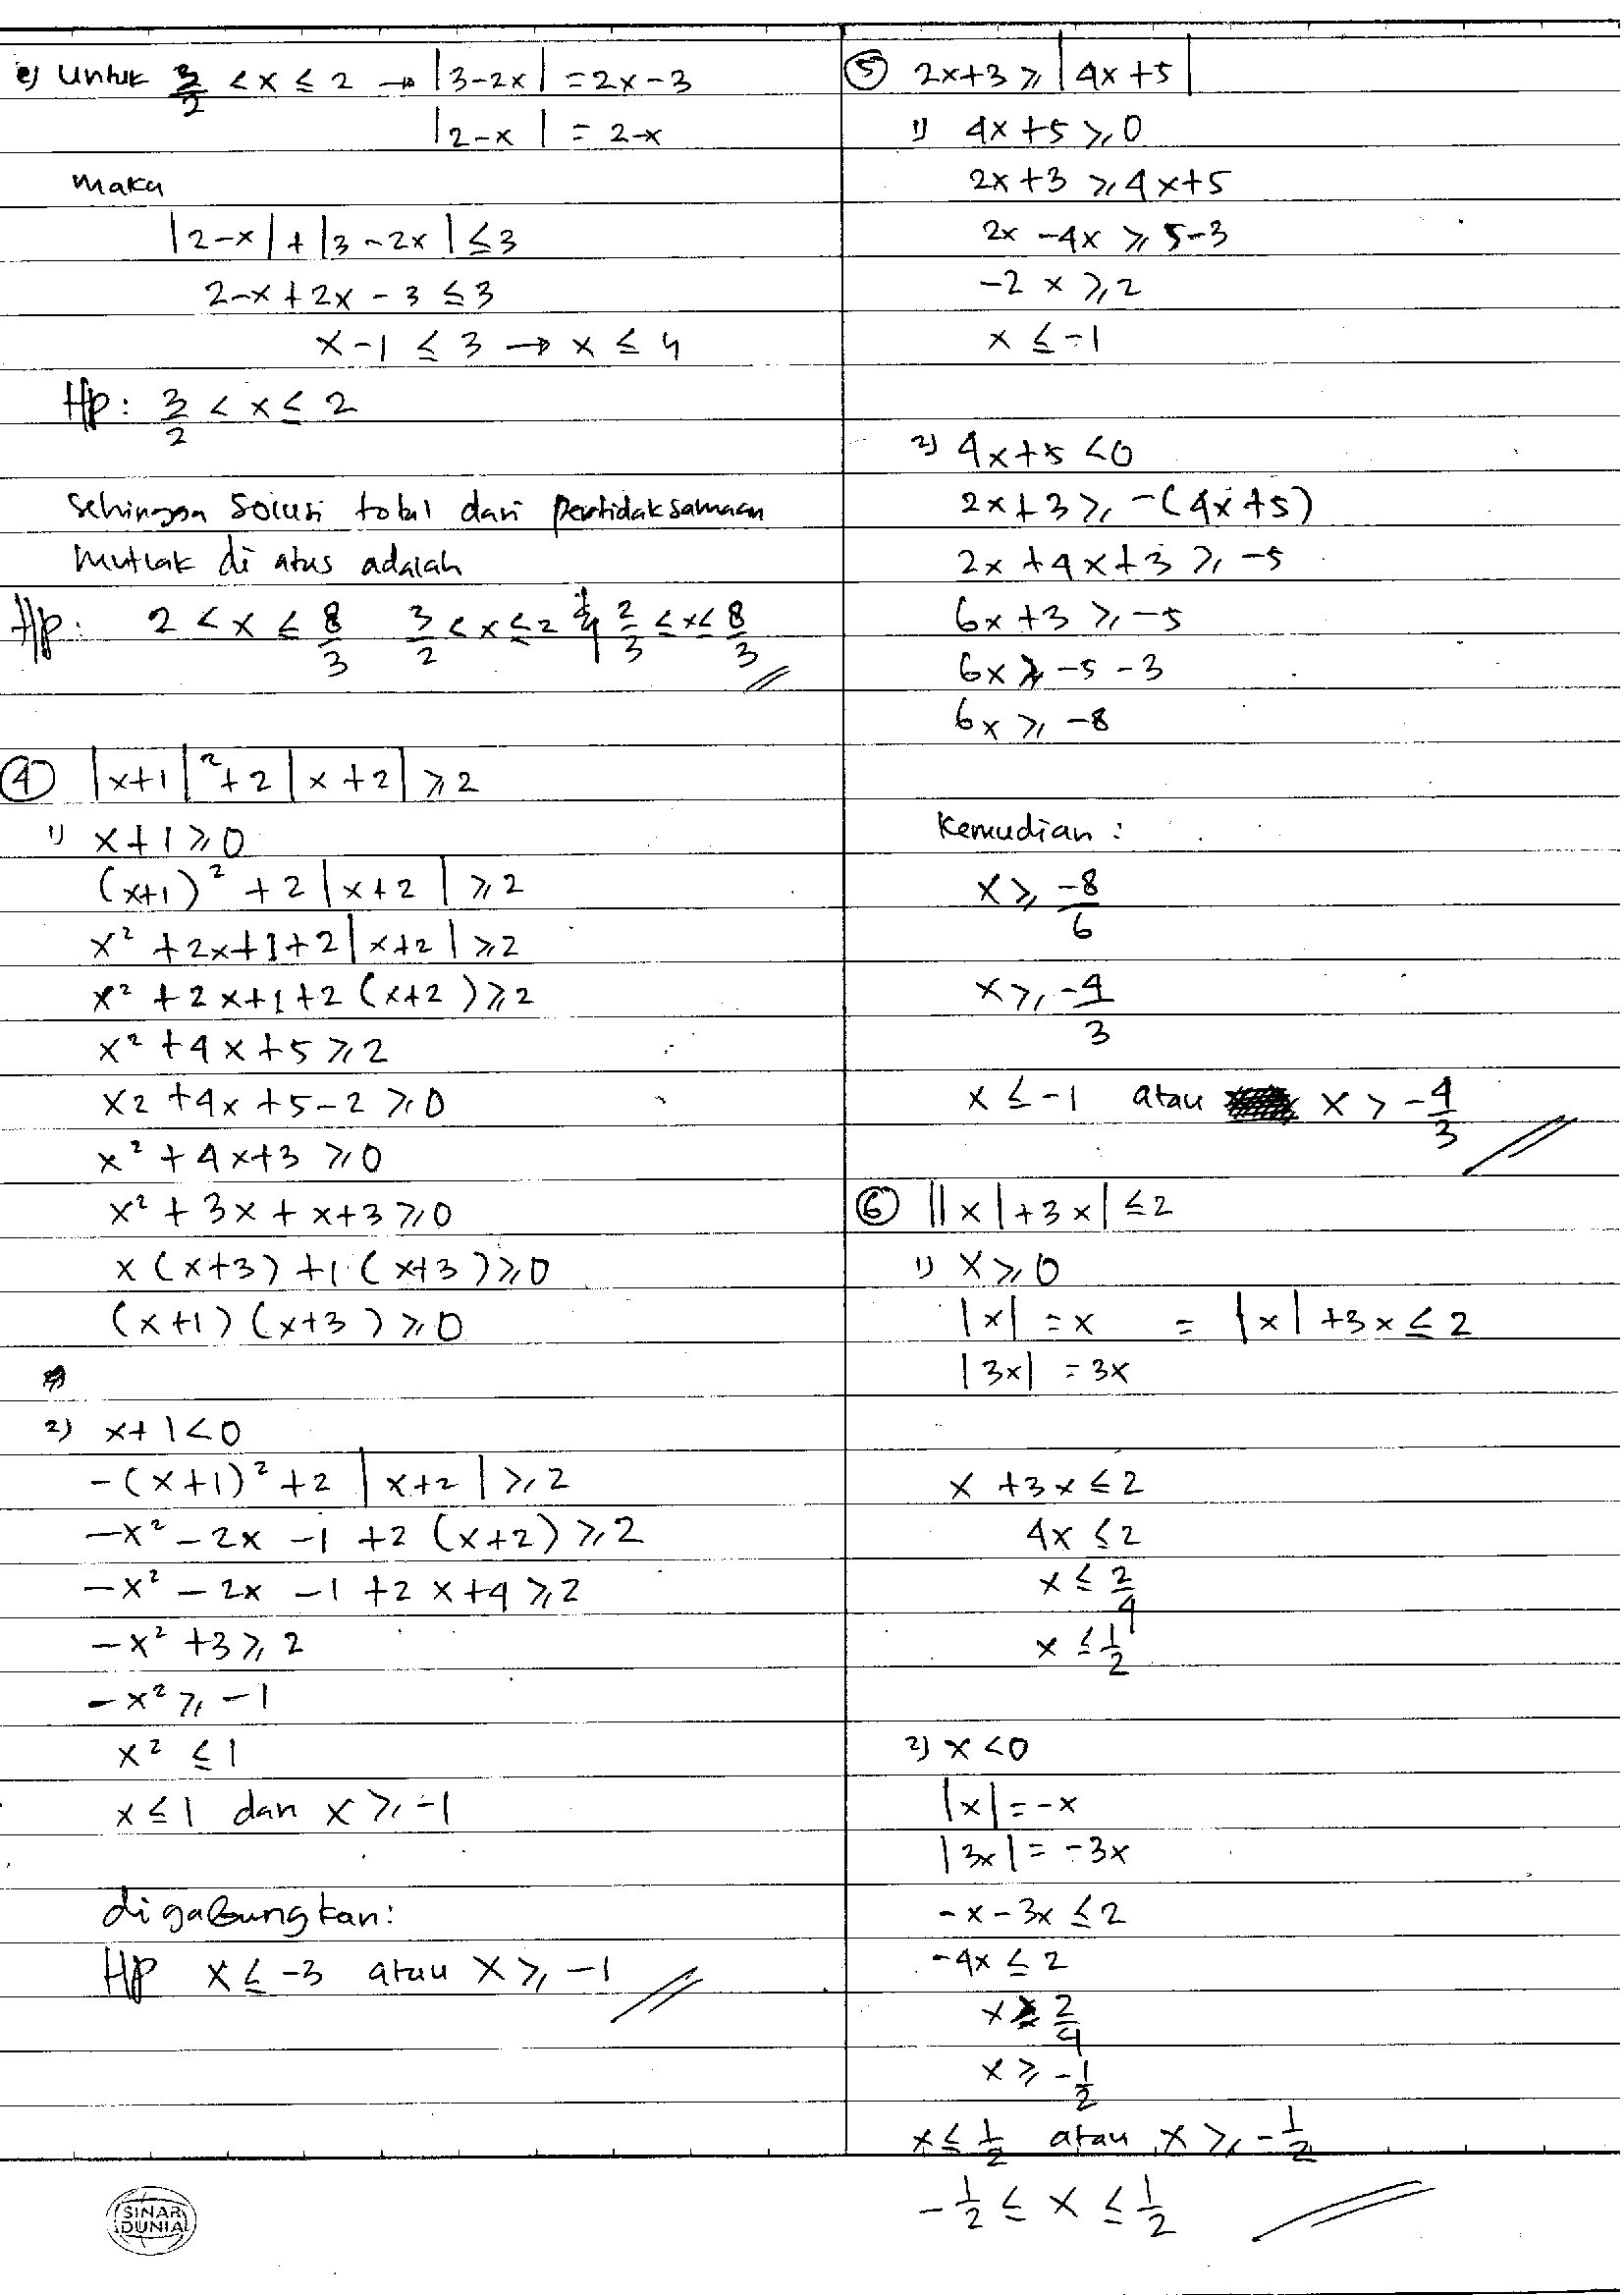 e) Untuk 3/2 < x ≤ 2 → |3-2x| = 2x-3
|2-x| = 2-x
Maka
|2-x| + |3-2x| ≤ 3
2-x+2x-3 ≤ 3
x-1 ≤ 3 → x ≤ 4
Hp: 3/2 < x ≤ 2
Sehingga solusi total dari pertidaksamaan
mutlak di atas adalah
Hp: 2 < x ≤ 8/3 3/2 < x ≤ 2 2/3 ≤ x ≤ 8/3
④ |x+1|² + 2|x+2| ≥ 2
1) x+1 ≥ 0
(x+1)² + 2|x+2| ≥ 2
x² + 2x+1+2|x+2| ≥ 2
x² + 2x+1+2(x+2) ≥ 2
x² + 4x+5 ≥ 2
x2 + 4x+5-2 ≥ 0
x² + 4x+3 ≥ 0
x² + 3x + x+3 ≥ 0
x(x+3) + 1(x+3) ≥ 0
(x+1)(x+3) ≥ 0
2) x+1 < 0
-(x+1)² + 2|x+2| ≥ 2
-x² - 2x - 1 + 2(x+2) ≥ 2
-x² - 2x - 1 + 2x+4 ≥ 2
-x² + 3 ≥ 2
-x² ≥ -1
x² ≤ 1
x ≤ 1 dan x ≥ -1
digabungkan:
HP x ≤ -3 atau x ≥ -1
SINAR
DUNIA
⑤ 2x+3 ≥ |4x+5|
1) 4x+5 ≥ 0
2x+3 ≥ 4x+5
2x-4x ≥ 5-3
-2x ≥ 2
x ≤ -1
2) 4x+5 < 0
2x+3 ≥ -(4x+5)
2x+4x+3 ≥ -5
6x+3 ≥ -5
6x ≥ -5-3
6x ≥ -8
Kemudian:
x ≥ -8/6
x ≥ -4/3
x ≤ -1 atau x > -4/3
⑥ ||x|+3x| ≤ 2
1) x ≥ 0
|x| = x = |x|+3x ≤ 2
|3x| = 3x
x+3x ≤ 2
4x ≤ 2
x ≤ 2/4
x ≤ 1/2
2) x < 0
|x| = -x
|3x| = -3x
-x-3x ≤ 2
-4x ≤ 2
x ≥ 2/4
x ≥ -1/2
x ≤ 1/2 atau x ≥ -1/2
-1/2 ≤ x ≤ 1/2